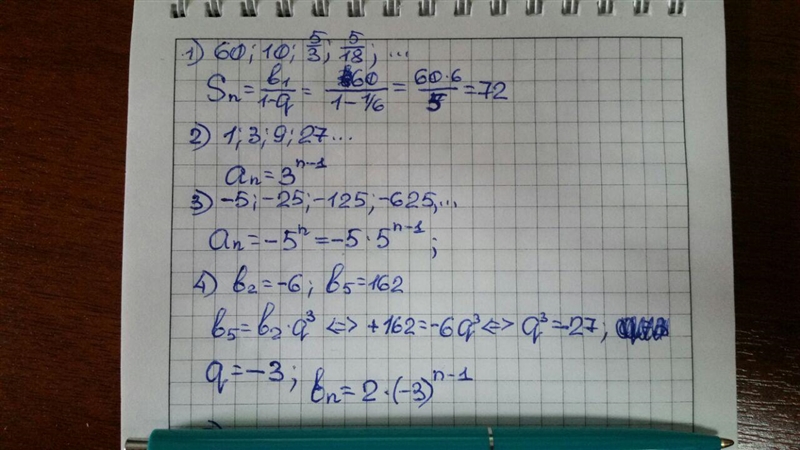 1) 60; 10; 5/3; 5/18; ...
Sn = b1/(1-q) = 60/(1-1/6) = 60·6/5 = 72
2) 1; 3; 9; 27...
an = 3^(n-1)
3) -5; -25; -125; -625,...
an = -5^n = -5·5^(n-1);
4) b2 = -6; b5 = 162
b5 = b2·q^3 <=> +162 = -6q^3 <=> q^3 = -27;
q = -3; bn = 2·(-3)^(n-1)